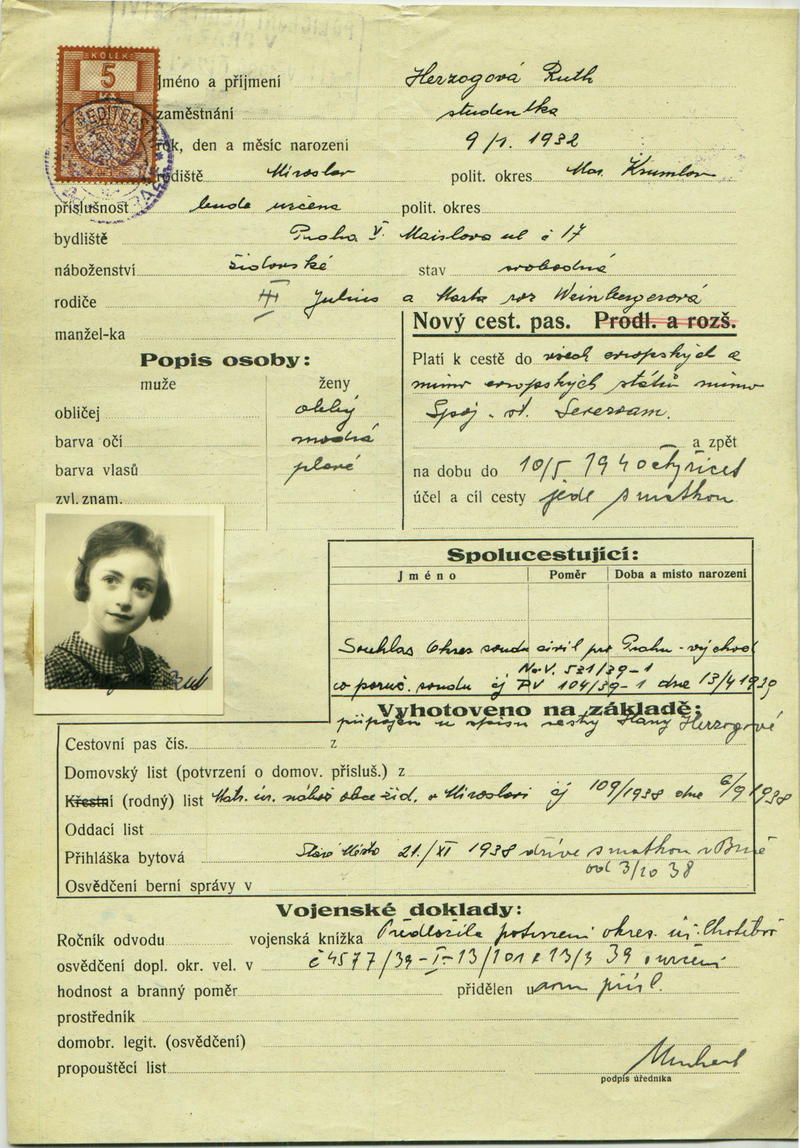 KOLEK
5
Jméno a příjmení Herzogová Ruth
zaměstnání studentka
rok, den a měsíc narození 9/1. 1932
rodiště Miroslav polit. okres Mor. Krumlov
příslušnost bude určena polit. okres
bydliště Praha V. Maislova ul č 17
náboženství židovské stav svobodná
rodiče Julius a Marta roz Weinbergerová
manžel-ka
Nový cest. pas. Prodl. a rozš.
Popis osoby:
muže ženy
obličej oblý
barva očí modrá
barva vlasů plavé
zvl. znam.
Platí k cestě do všech evropských a
mimo evropských států mimo
Spoj. st. Severoam.
a zpět
na dobu do 10/5 1940 čtyřicet
účel a cíl cesty jede s matkou
Spolucestující:
Jméno Poměr Doba a místo narození
Souhlas Okres soudu civil pro Prahu - východ
No V. 531/39-1
co poruč. soudu čj PV 104/39-1 dne 13/4 1939
Vyhotoveno na základě:
připojen u spisu sestry Hany Herzogové
Cestovní pas čís. z
Domovský list (potvrzení o domov. přísluš.) z
Křestní (rodný) list Matr. úř. nábož obce žid. v Miroslavi čj 109/1938 dne 6/9 1938
Oddací list
Přihláška bytová Staré Město 21./XI 1938 dříve s matkou v Brně
od 3/10 38
Osvědčení berní správy v
Vojenské doklady:
Ročník odvodu vojenská knížka Předložila potvrzení okres. úř. Chotěboř
osvědčení dopl. okr. vel. v č 4577/39-I-13/101 z 13/3 39 o určení
hodnost a branný poměr přidělen u dom přísl.
prostředník
domobr. legit. (osvědčení)
propouštěcí list
podpis úředníka